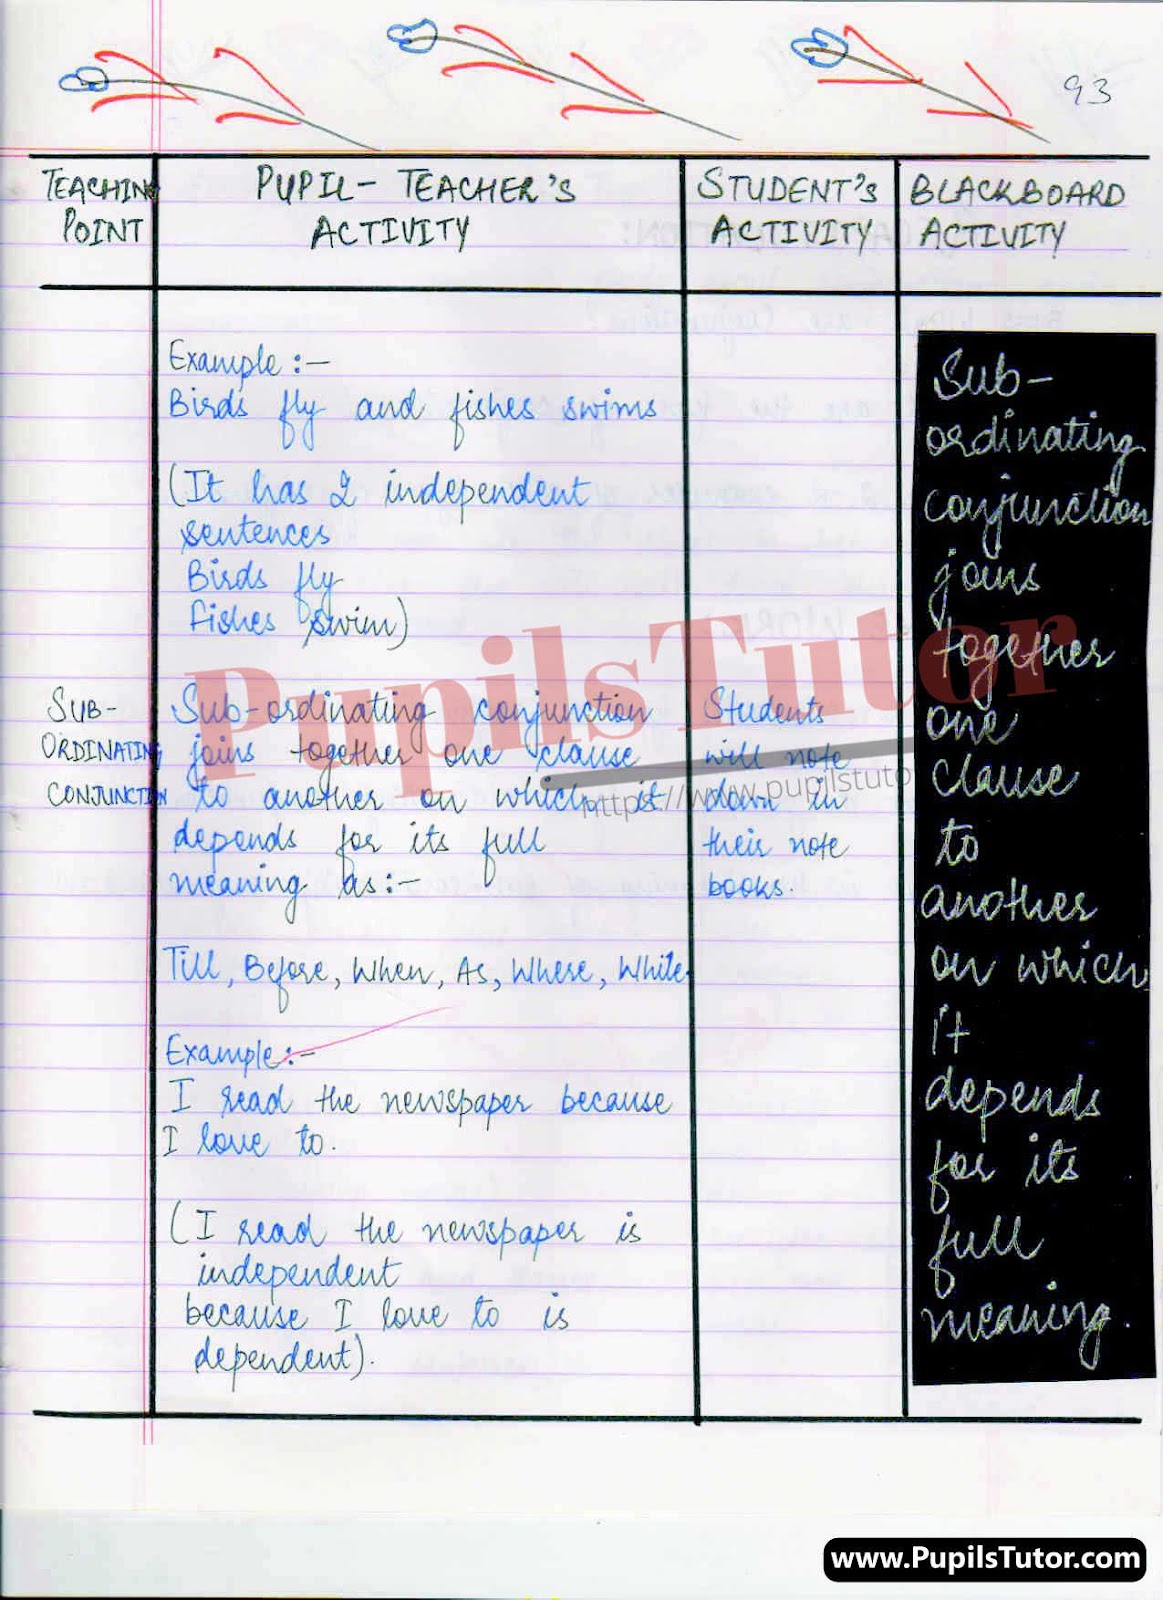 93
TEACHING
POINT
PUPIL- TEACHER'S
ACTIVITY
STUDENT'S
ACTIVITY
BLACKBOARD
ACTIVITY
Example :-
Birds fly and fishes swims
(It has 2 independent
sentences
Birds fly
fishes swim)
SUB-
ORDINATING
CONJUNCTION
Sub-ordinating conjunction
joins together one clause
to another on which it
depends for its full
meaning as:-
Till, Before, When, As, Where, While
Example:-
I read the newspaper because
I love to.
(I read the newspaper is
independent
because I love to is
dependent).
Students
will note
down in
their note
books.
Sub-
ordinating
conjunction
joins
together
one
clause
to
another
on which
it
depends
for its
full
meaning.
PupilsTutor
https://www.pupilstuto
www.PupilsTutor.com